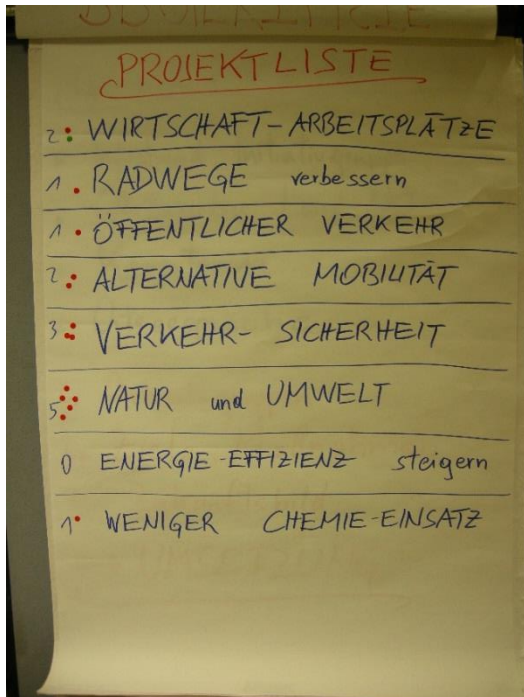 PROJEKTLISTE
2 WIRTSCHAFT-ARBEITSPLÄTZE
1 RADWEGE verbessern
1 ÖFFENTLICHER VERKEHR
2 ALTERNATIVE MOBILITÄT
3 VERKEHR- SICHERHEIT
5 NATUR und UMWELT
0 ENERGIE-EFFIZIENZ steigern
1 WENIGER CHEMIE-EINSATZ